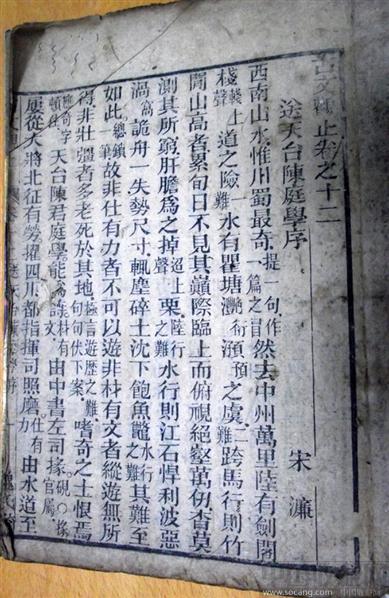 古文觀止卷之十二
送天台陳庭學序 宋濂
西南山水惟川蜀最奇提一句作一篇之冒然去中州萬里陸有劍閣
棧道之險陸行之難水有瞿塘灩澦之虞水行之難跨馬行則竹
間山高者累旬日不見其巔際臨上而俯視絕壑萬仞杳莫
測其所窮肝膽為之掉栗陸行之難水行則江石悍利波惡
渦詭舟一失勢尺寸輒麋碎土沈下飽魚鼈水行之難其難至
如此總鎖一筆故非仕有力者不可以遊非材有文者縱遊無所
得非壯彊者多老死於其地極言遊歷之難句句伏下案嗜奇之士恨焉
頓住應奇字天台陳君庭學能為詩材有文由中書左司掾
屢從大將北征有勞擢四川都指揮司照磨仕有力由水道至
www.socang.com